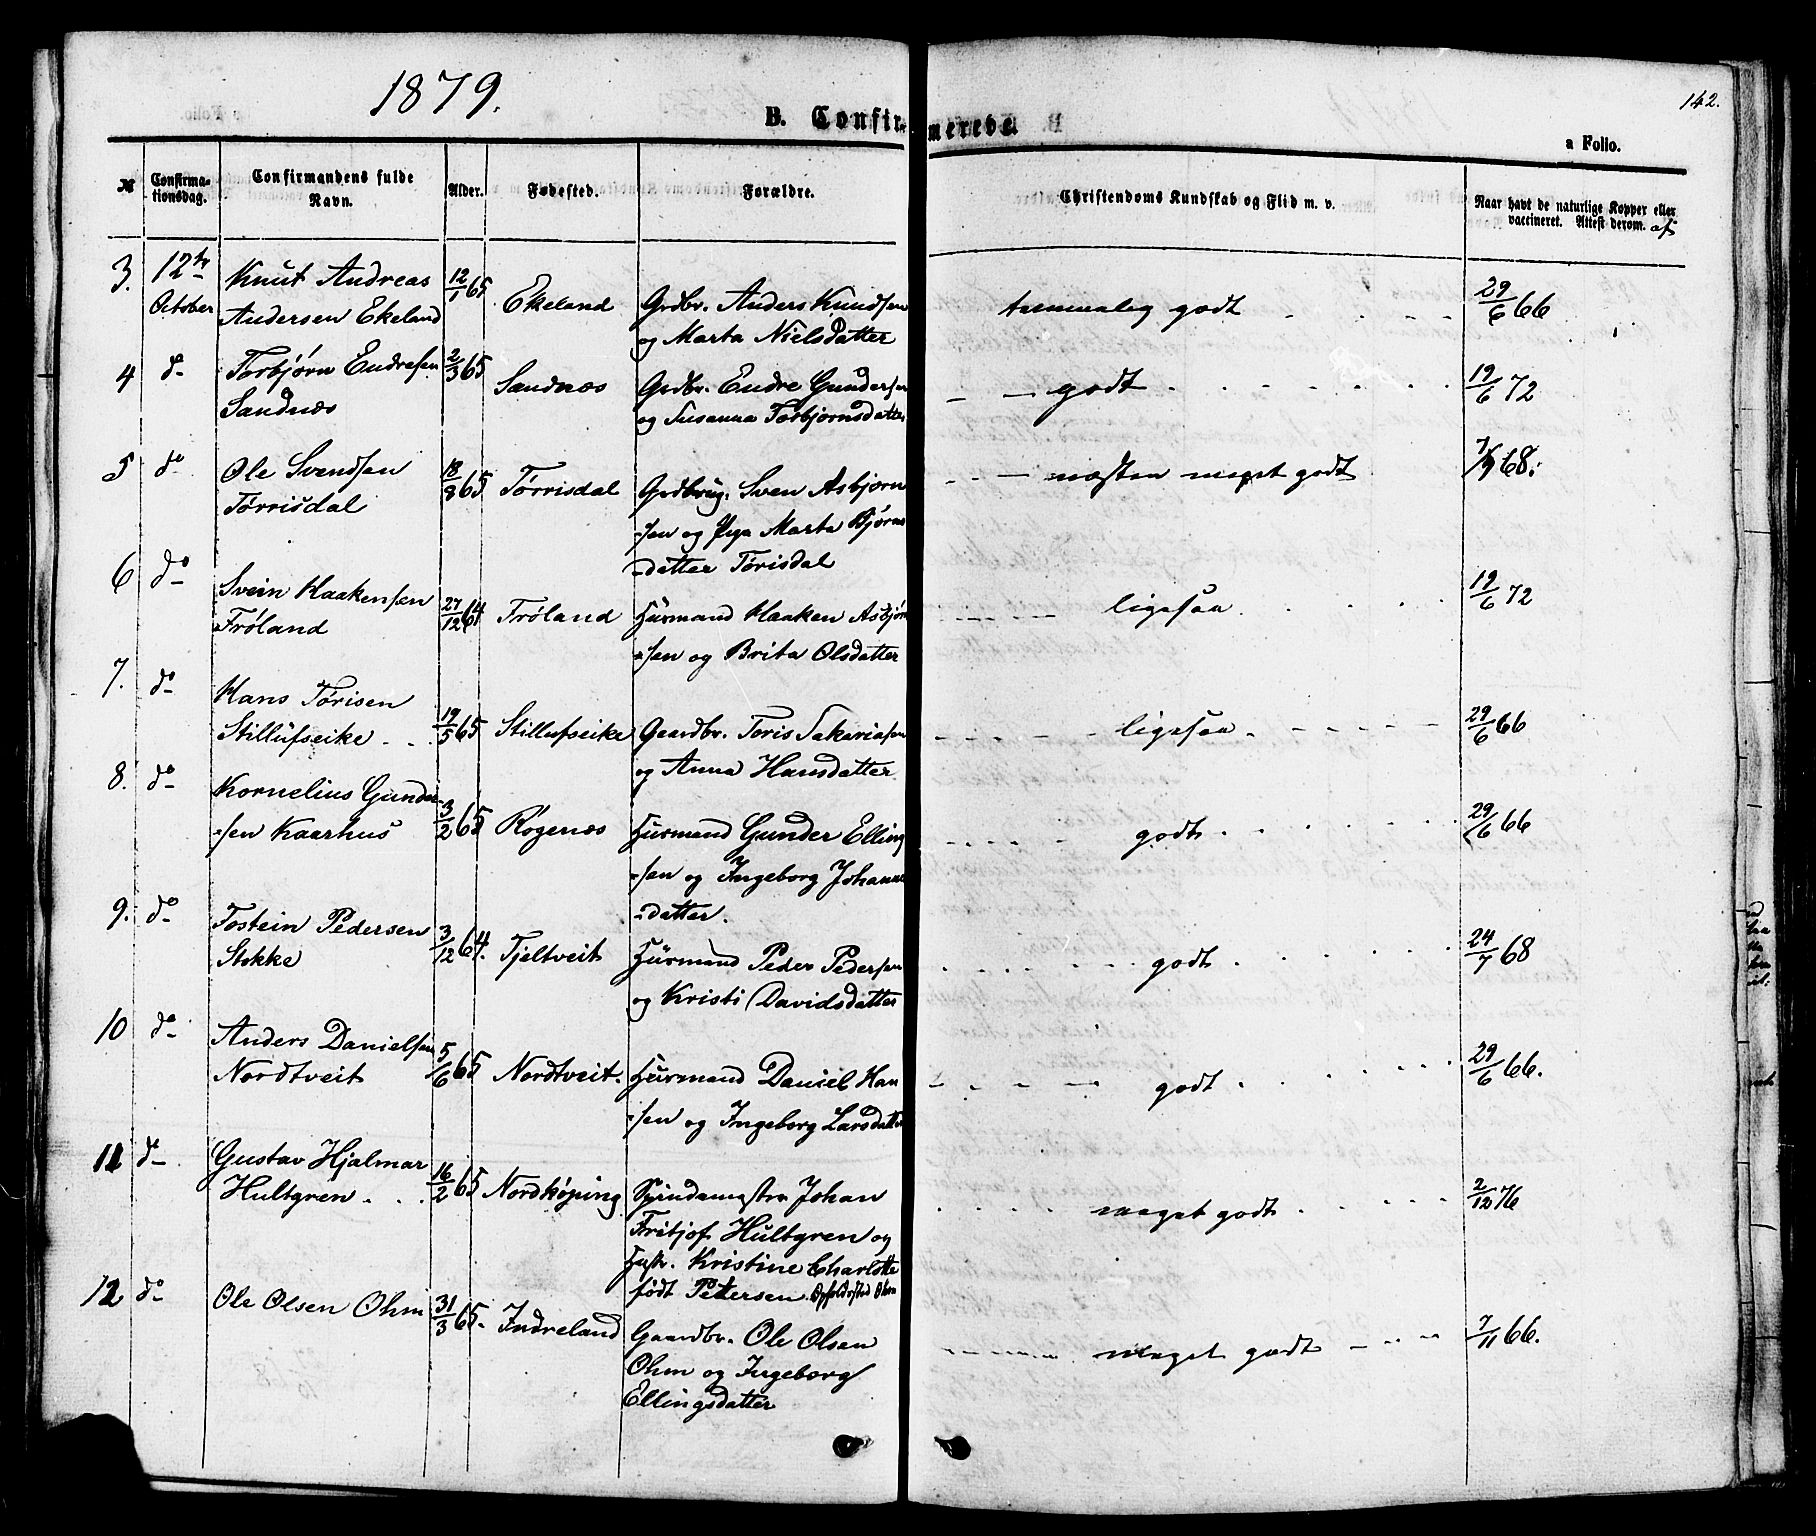 1879.
142.
B. Confirmerede.
a Folio.
№
Confirmationsdag.
Confirmandens fulde Navn.
Alder.
Fødested.
Forældre.
Christendoms Kundskab og Flid m. v.
Naar havt de naturlige Kopper eller vaccineret. Attest derom. af
3. 12te October Knut Andreas Andersen Ekeland 12/1 65 Ekeland Grdbr. Anders Knudsen og Marta Nielsdatter temmelig godt 29/6 66
4 do Torbjørn Endresen Sandnæs 2/3 65 Sandnæs Grdbr. Endre Gundersen og Susanna Torbjørnsdatter godt 19/6 72
5 do Ole Svendsen Tørrisdal 18/8 65 Tørrisdal Grdbrug. Sven Asbjørnsen og Pige Marta Bjørnsdatter Tørisdal næsten meget godt 7/9 68.
6 do Svein Haakensen Frøland 27/12 64 Frøland Húsmand Haaken Asbjørnsen og Brita Olsdatter ligesaa 19/6 72
7. do Hans Tørisen Stillúfseike 19/5 65 Stillufseike Gaardbr. Toris Sakariasen og Anna Hansdatter ligesaa 29/6 66
8. do Kornelius Gundersen Kaarhus 3/2 65 Røgenæs Húsmand Gunder Ellingsen og Ingeborg Johannesdatter. godt 29/6 66
9. do Tostein Pedersen Stokke 3/12 64. Tjeltveit Húsmand Peder Pedersen og Kristi Davidsdatter godt 24/7 68
10 do Anders Danielsen Nordtveit 5/6 65 Nordtveit. Húsmand Daniel Hansen og Ingeborg Larsdatter godt 29/6 66.
11 do Gustav Hjalmar Hultgren 16/2 65 Nordkøping Spindemester Johan Fritjof Hultgren og Hustr. Kristine Charlotte født Petersen. Opholdssted Ohm meget godt 2/12 76
12 do Ole Olsen Ohm 31/3 65. Indreland Gaardbr. Ole Olsen Ohm og Ingeborg Ellingsdatter meget godt 7/11 66.